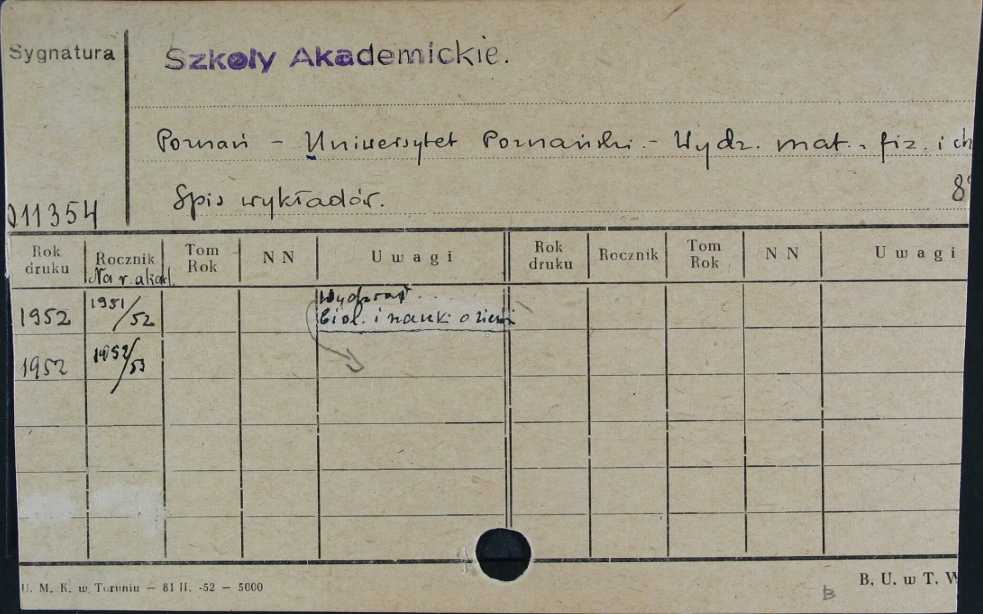 Sygnatura
Szkoły Akademickie.
Poznań - Uniwersytet Poznański. - Wydz. mat., fiz. i ch
Spis wykładów. 8°
011354
Rok druku Rocznik Tom Rok N N Uwagi Rok druku Rocznik Tom Rok N N Uwagi
Na r. akad.
1952 1951/52
Biol. i nauk o ziemi
1952 1952/53
U. M. K. w Toruniu — 81 II. -52 — 5000
B. U. w T. W
B